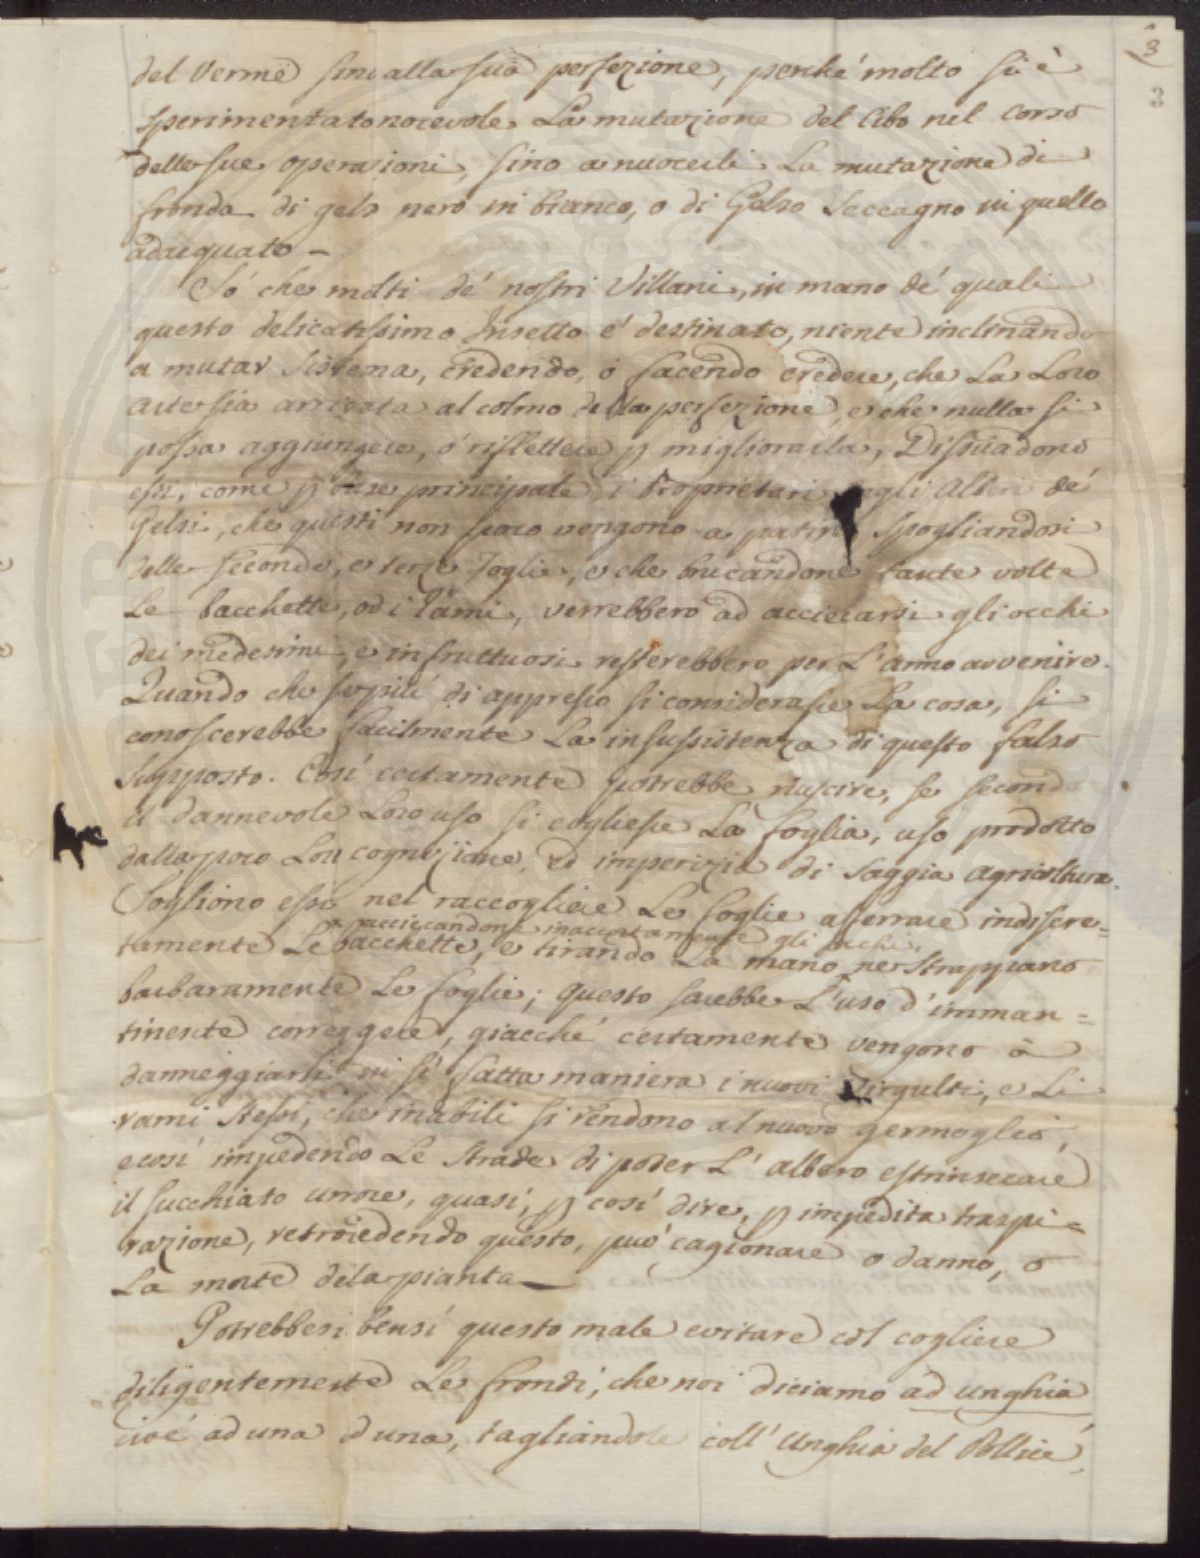 3
3
del Verme sino alla sua perfezione, perché molto si è
sperimentato nocevole La mutazione del Cibo nel corso
delle sue operazioni, sino a nuocerli La mutazione di
fronda di gelso nero in bianco, o di Gelso Seccagno in quello
adacquato –
Só che molti de' nostri Villani, in mano de' quali
questo delicatissimo Insetto é destinato, niente inclinando
a mutar Sistema, credendo, ó facendo credere, che La Loro
Arte sia arrivata al colmo della perfezione, e che nulla si
possa aggiungere, ó riflettere p migliorarla, Dissuadono
essi, come p principale i Proprietari degli Alberi de'
Gelsi, che questi non poco vengono a patire Spogliandosi
delle seconde, e terze foglie, e che brucandone tante volte
Le bacchette, od i rami, verrebbero ad acciecarsi gli occhi
dei medesimi, e infruttuosi resterebbero per L' anno avvenire.
Quando che se più di appresso si considerasse La cosa, si
conoscerebbe facilmente La insussistenza di questo falso
supposto. Così certamente potrebbe riuscire, se secondo
il dannevole Loro uso si cogliesse La foglia, uso prodotto
dalla poco Lor cognizione, ed imperizia di saggia agricoltura.
Sogliono essi nel raccogliere Le foglie afferrare indiscre=
acciecandone inaccortamente gli occhi,
tamente Le bacchette, e tirando La mano ne strappano
barbaramente Le foglie; questo sarebbe L' uso d' imman=
tinente correggere, giacché certamente vengono á
danneggiarsi in sì fatta maniera i nuovi Virgulti, e Li
rami stessi, che inabili si rendono al nuovo germoglio,
e così impedendo Le Strade di poder L' albero estrinsecare
il succhiato umore, quasi, p così dire, p impedita traspi=
razione, retrocedendo questo, può cagionare o danno, o
La morte dela pianta –
Potrebbesi bensì questo male evitare col cogliere
diligentemente Le frondi, che noi diciamo ad unghia
cioé ad una ad una, tagliandole coll' Unghia del Pollice,